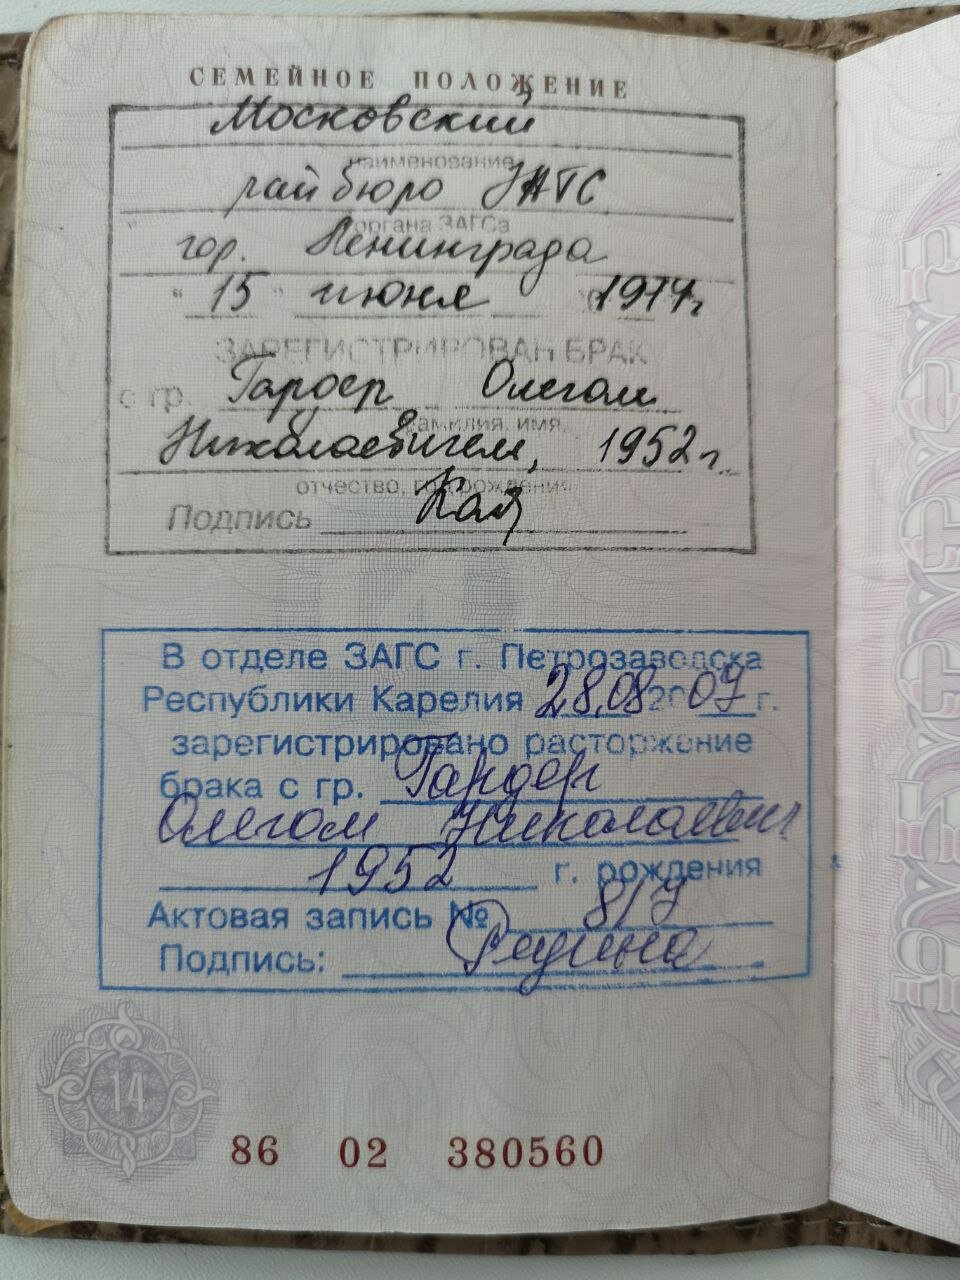 СЕМЕЙНОЕ ПОЛОЖЕНИЕ
Московский
наименование
райбюро ЗАГС
органа ЗАГСа
гор. Ленинграда
"15" июня 1974г
ЗАРЕГИСТРИРОВАН БРАК
с гр. Гардер Олегом
фамилия, имя,
Николаевичем, 1952 г.
отчество, год рождения
Подпись
В отделе ЗАГС г. Петрозаводска
Республики Карелия 28.08 2007 г.
зарегистрировано расторжение
брака с гр. Гардер
Олегом Николаевич
1952 г. рождения
Актовая запись № 817
Подпись:
14
86 02 380560